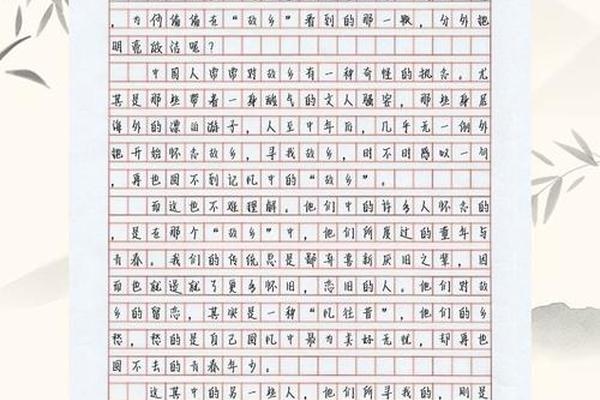 ，为何偏偏在“故乡”看到的那一轮，分外地
明亮皎洁呢？
中国人常常对故乡有一种奇怪的执念。尤
其是那些带着一身酸气的文人骚客，那些身居
海外的漂泊游子，人至中年后，几乎无一例外
地开始怀念故乡，寻找故乡，时不时感叹一句
，再也回不到记忆中的“故乡”。
而这也不难理解。他们中的许多人怀念的
，是在那个“故乡”中，他们所度过的童年与
青春。我们的传统总是鄙弃喜新厌旧之辈，因
而也就造就了更多怀旧，恋旧的人。他们对故
乡的留恋，其实是一种“忆往昔”，他们的乡
愁，愁的是自己回忆中最为美好无忧，却再也
回不去的青春年少。
这其中的另一些人，他们所寻找的，则是